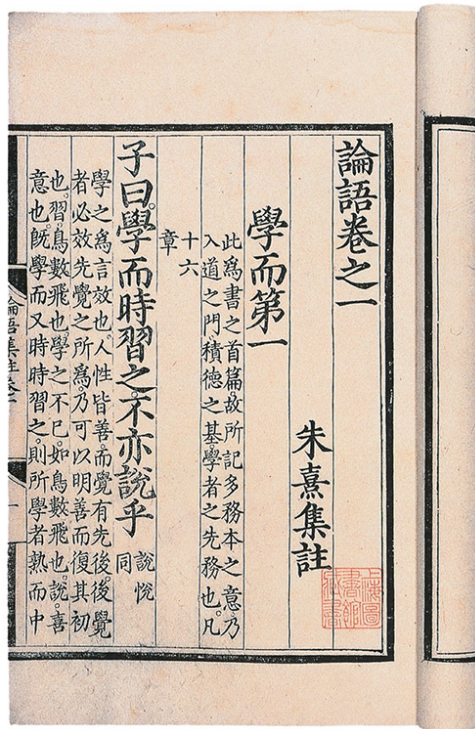 論語卷之一
朱熹集註
上海圖
書館
藏書
學而第一
此爲書之首篇。故所記多務本之意。乃
入道之門積德之基。學者之先務也。凡
十六
章
子曰。學而時習之。不亦說乎
說悅
同
學之爲言效也。人性皆善。而覺有先後。後覺
者必效先覺之所爲。乃可以明善而復其初
也。習。鳥數飛也。學之不已。如鳥數飛也。說。喜
意也。旣學而又時時習之。則所學者熟而中